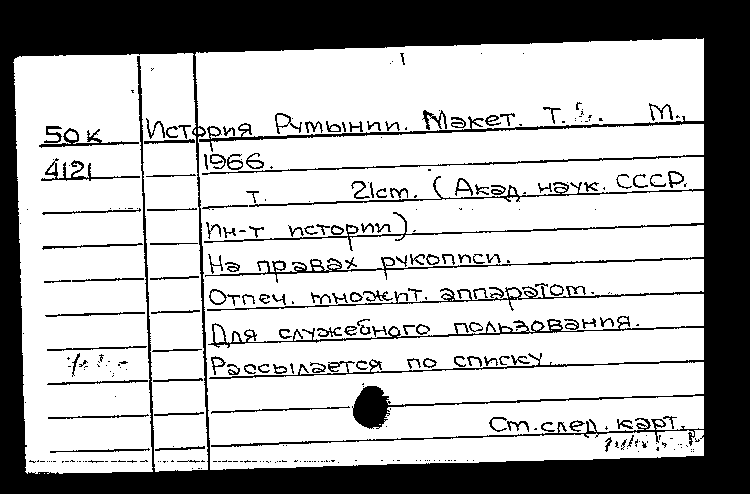 50К История Румынии. Макет. Т. М.,
4121 1966.
т. 21см. (Акад. наук. СССР.
Ин-т истории).
На правах рукописи.
Отпеч. множит. аппаратом.
Для служебного пользования.
Рассылается по списку.
См. след. карт.